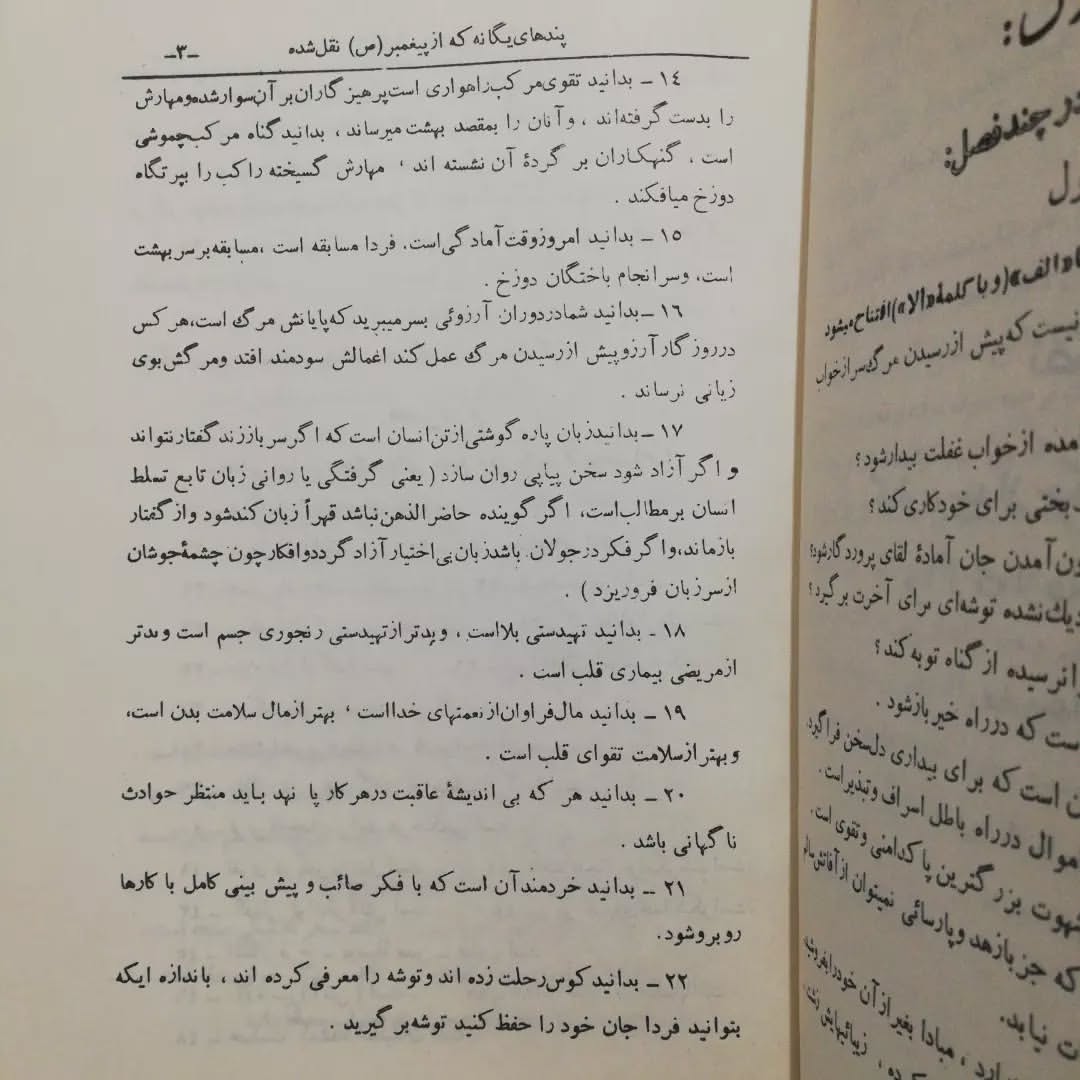 پندهای یگانه که از پیغمبر (ص) نقل شده
-۳-
۱۴ – بدانید تقوی مرکب راهواری است پرهیزگاران بر آن سوار شده و مهارش
را بدست گرفته‌اند ، و آنان را بمقصد بهشت میرساند ، بدانید گناه مرکب چموشی
است ، گنهکاران بر گردهٔ آن نشسته اند ، مهارش گسیخته راکب را بپرتگاه
دوزخ میافکند .
۱۵ – بدانید امروز وقت آمادگی است، فردا مسابقه است ، مسابقه بر سر بهشت
است، و سرانجام باختگان دوزخ .
۱۶ – بدانید شما در دوران آرزوئی بسر میبرید که پایانش مرگ است، هر کس
در روزگار آرزو پیش از رسیدن مرگ عمل کند اعمالش سودمند افتد و مرگش بوی
زیانی نرساند .
۱۷ – بدانید زبان پاره گوشتی از تن انسان است که اگر سر باز زند گفتار نتواند
و اگر آزاد شود سخن پیاپی روان سازد ( یعنی گرفتگی یا روانی زبان تابع تسلط
انسان بر مطالب است، اگر گوینده حاضر الذهن نباشد قهراً زبان کند شود و از گفتار
بازماند، و اگر فکر در جولان باشد زبان بی اختیار آزاد گردد و افکار چون چشمهٔ جوشان
از سر زبان فرو ریزد ) .
۱۸ - بدانید تهیدستی بلا است ، و بدتر از تهیدستی رنجوری جسم است و بدتر
از مریضی بیماری قلب است .
۱۹ – بدانید مال فراوان از نعمتهای خدا است ، بهتر از مال سلامت بدن است،
و بهتر از سلامت تقوای قلب است .
۲۰ – بدانید هر که بی اندیشهٔ عاقبت در هر کار پا نهد باید منتظر حوادث
ناگهانی باشد .
۲۱ – بدانید خردمند آن است که با فکر صائب و پیش بینی کامل با کارها
روبرو شود.
۲۲ – بدانید کوس رحلت زده اند و توشه را معرفی کرده اند ، باندازه ایکه
بتوانید فردا جان خود را حفظ کنید توشه بر گیرید .
در چند فصل:
«الف» (و با کلمهٔ «الا») افتتاح میشود
نیست که پیش از رسیدن مرگ سر از خواب
از خواب غفلت بیدار شود ؟
بختی برای خود کاری کند ؟
آمدن جان آمادهٔ لقای پروردگار شود؟
نشده توشه‌ای برای آخرت برگیرد؟
نرسیده از گناه توبه کند ؟
که در راه خیر باز شود .
است که برای بیداری دل سخن فرا گیرد.
در راه باطل اسراف و تبذیر است .
بزرگترین پاکدامنی و تقوی است .
که جز بازهد و پارسائی نمیتوان از آفاتش
نیابد.
، مبادا بغیر از آن خود را بفروشید
، زیبائیهایش